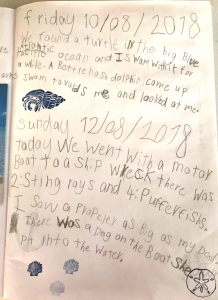 friday 10/08/2018
We found a turtle in the big Blue
Pacific ocean and I swam with it for
a while. A Bottlenose dolphin came up
swam towards me and looked at me.
Sunday 12/08/2018
today We Went With a motor
Boat to a Ship Wreck there was
2:Sting rays and 4:Pufferfishs.
I Saw a Propeler as Big as my Dad
there Was a Dog on the Boat She
into the Water.